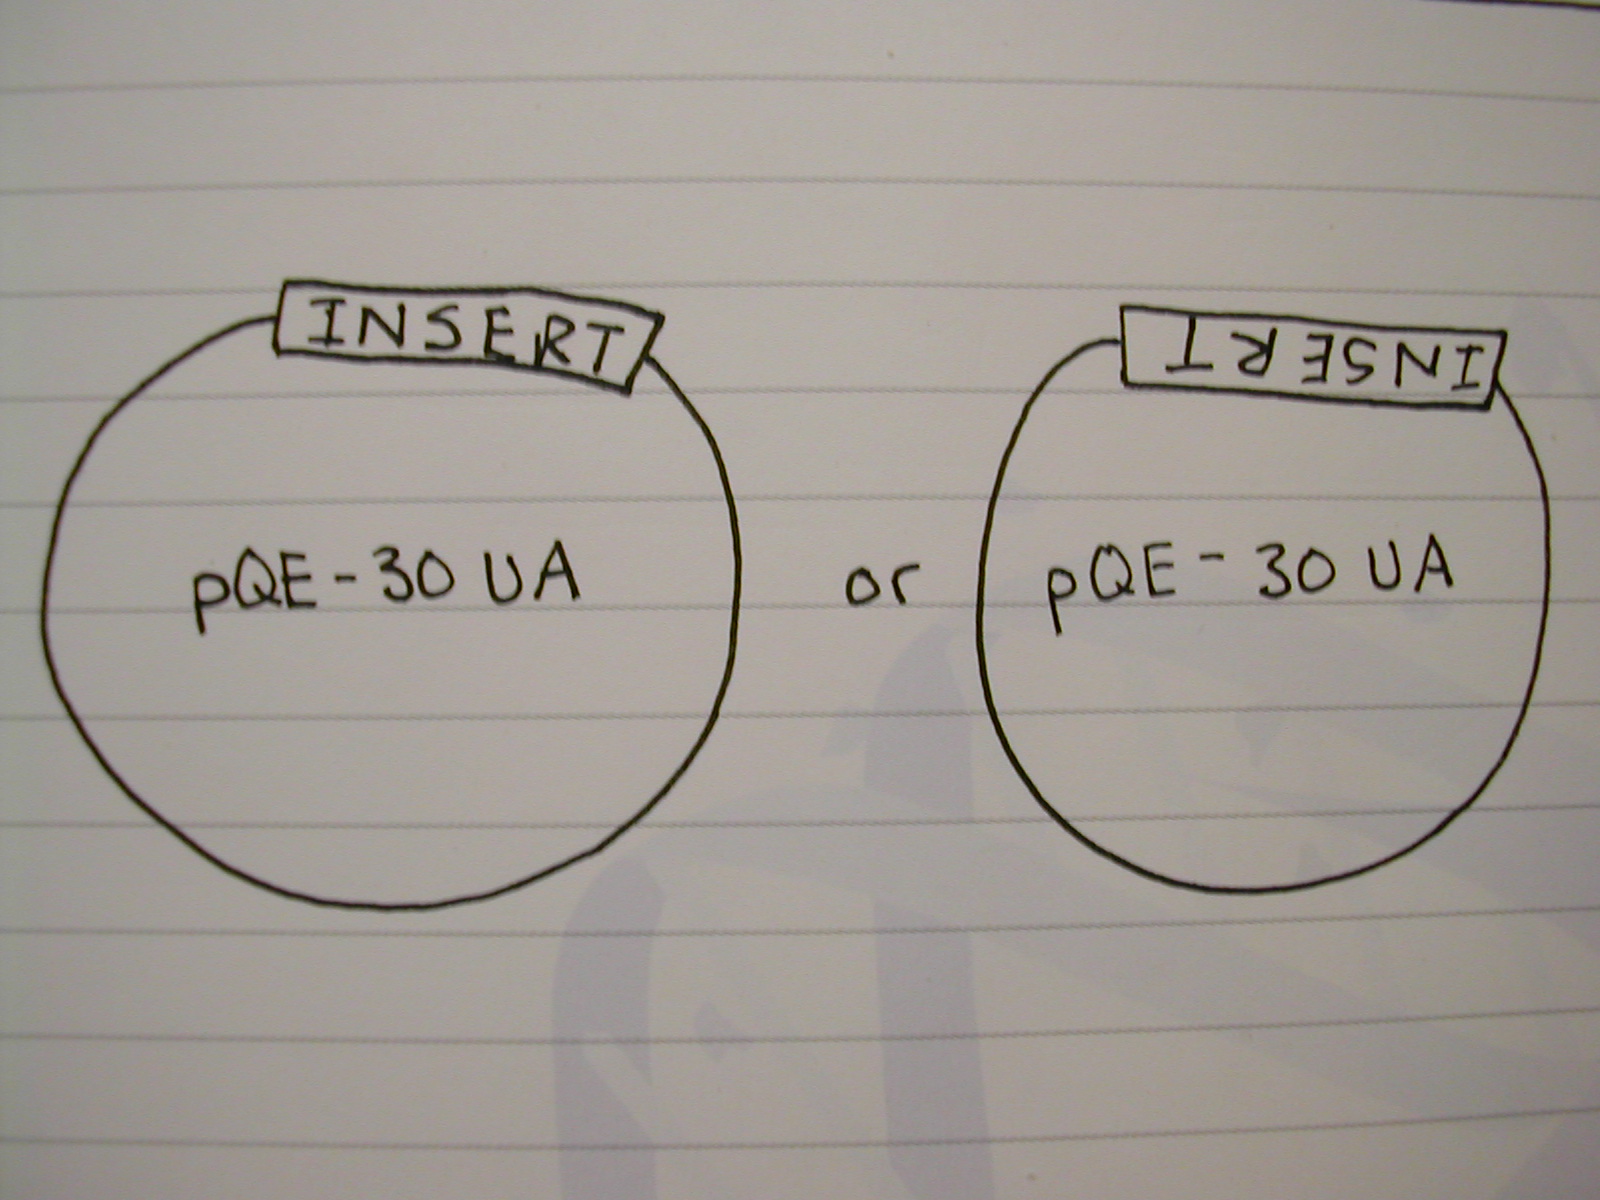 INSERT
pQE-30 UA
or
INSERT
pQE-30 UA